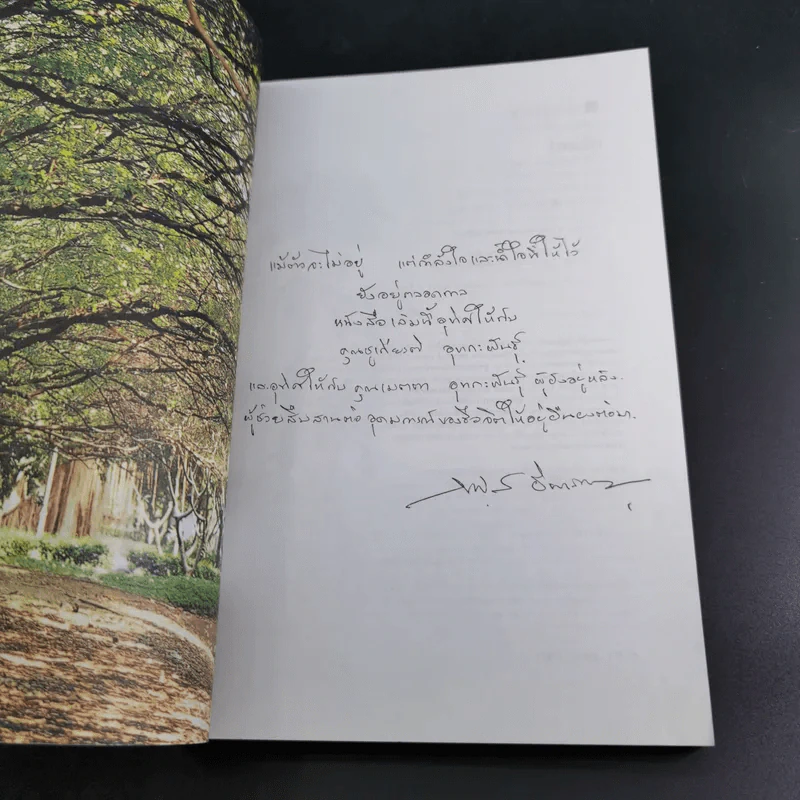 แม้ตัวจะไม่อยู่ แต่กำลังใจและน้ำใจที่ให้ไว้
ยังอยู่ตลอดกาล
หนังสือเล่มนี้อุทิศให้กับ
คุณชูเกียรติ อุทกะพันธุ์
และอุทิศให้กับ คุณเมตตา อุทกะพันธุ์ ผู้ยังอยู่หลัง
ผู้ช่วยสืบสานต่อ อุดมการณ์ของชีวจิตให้อยู่ยืนยงต่อมา